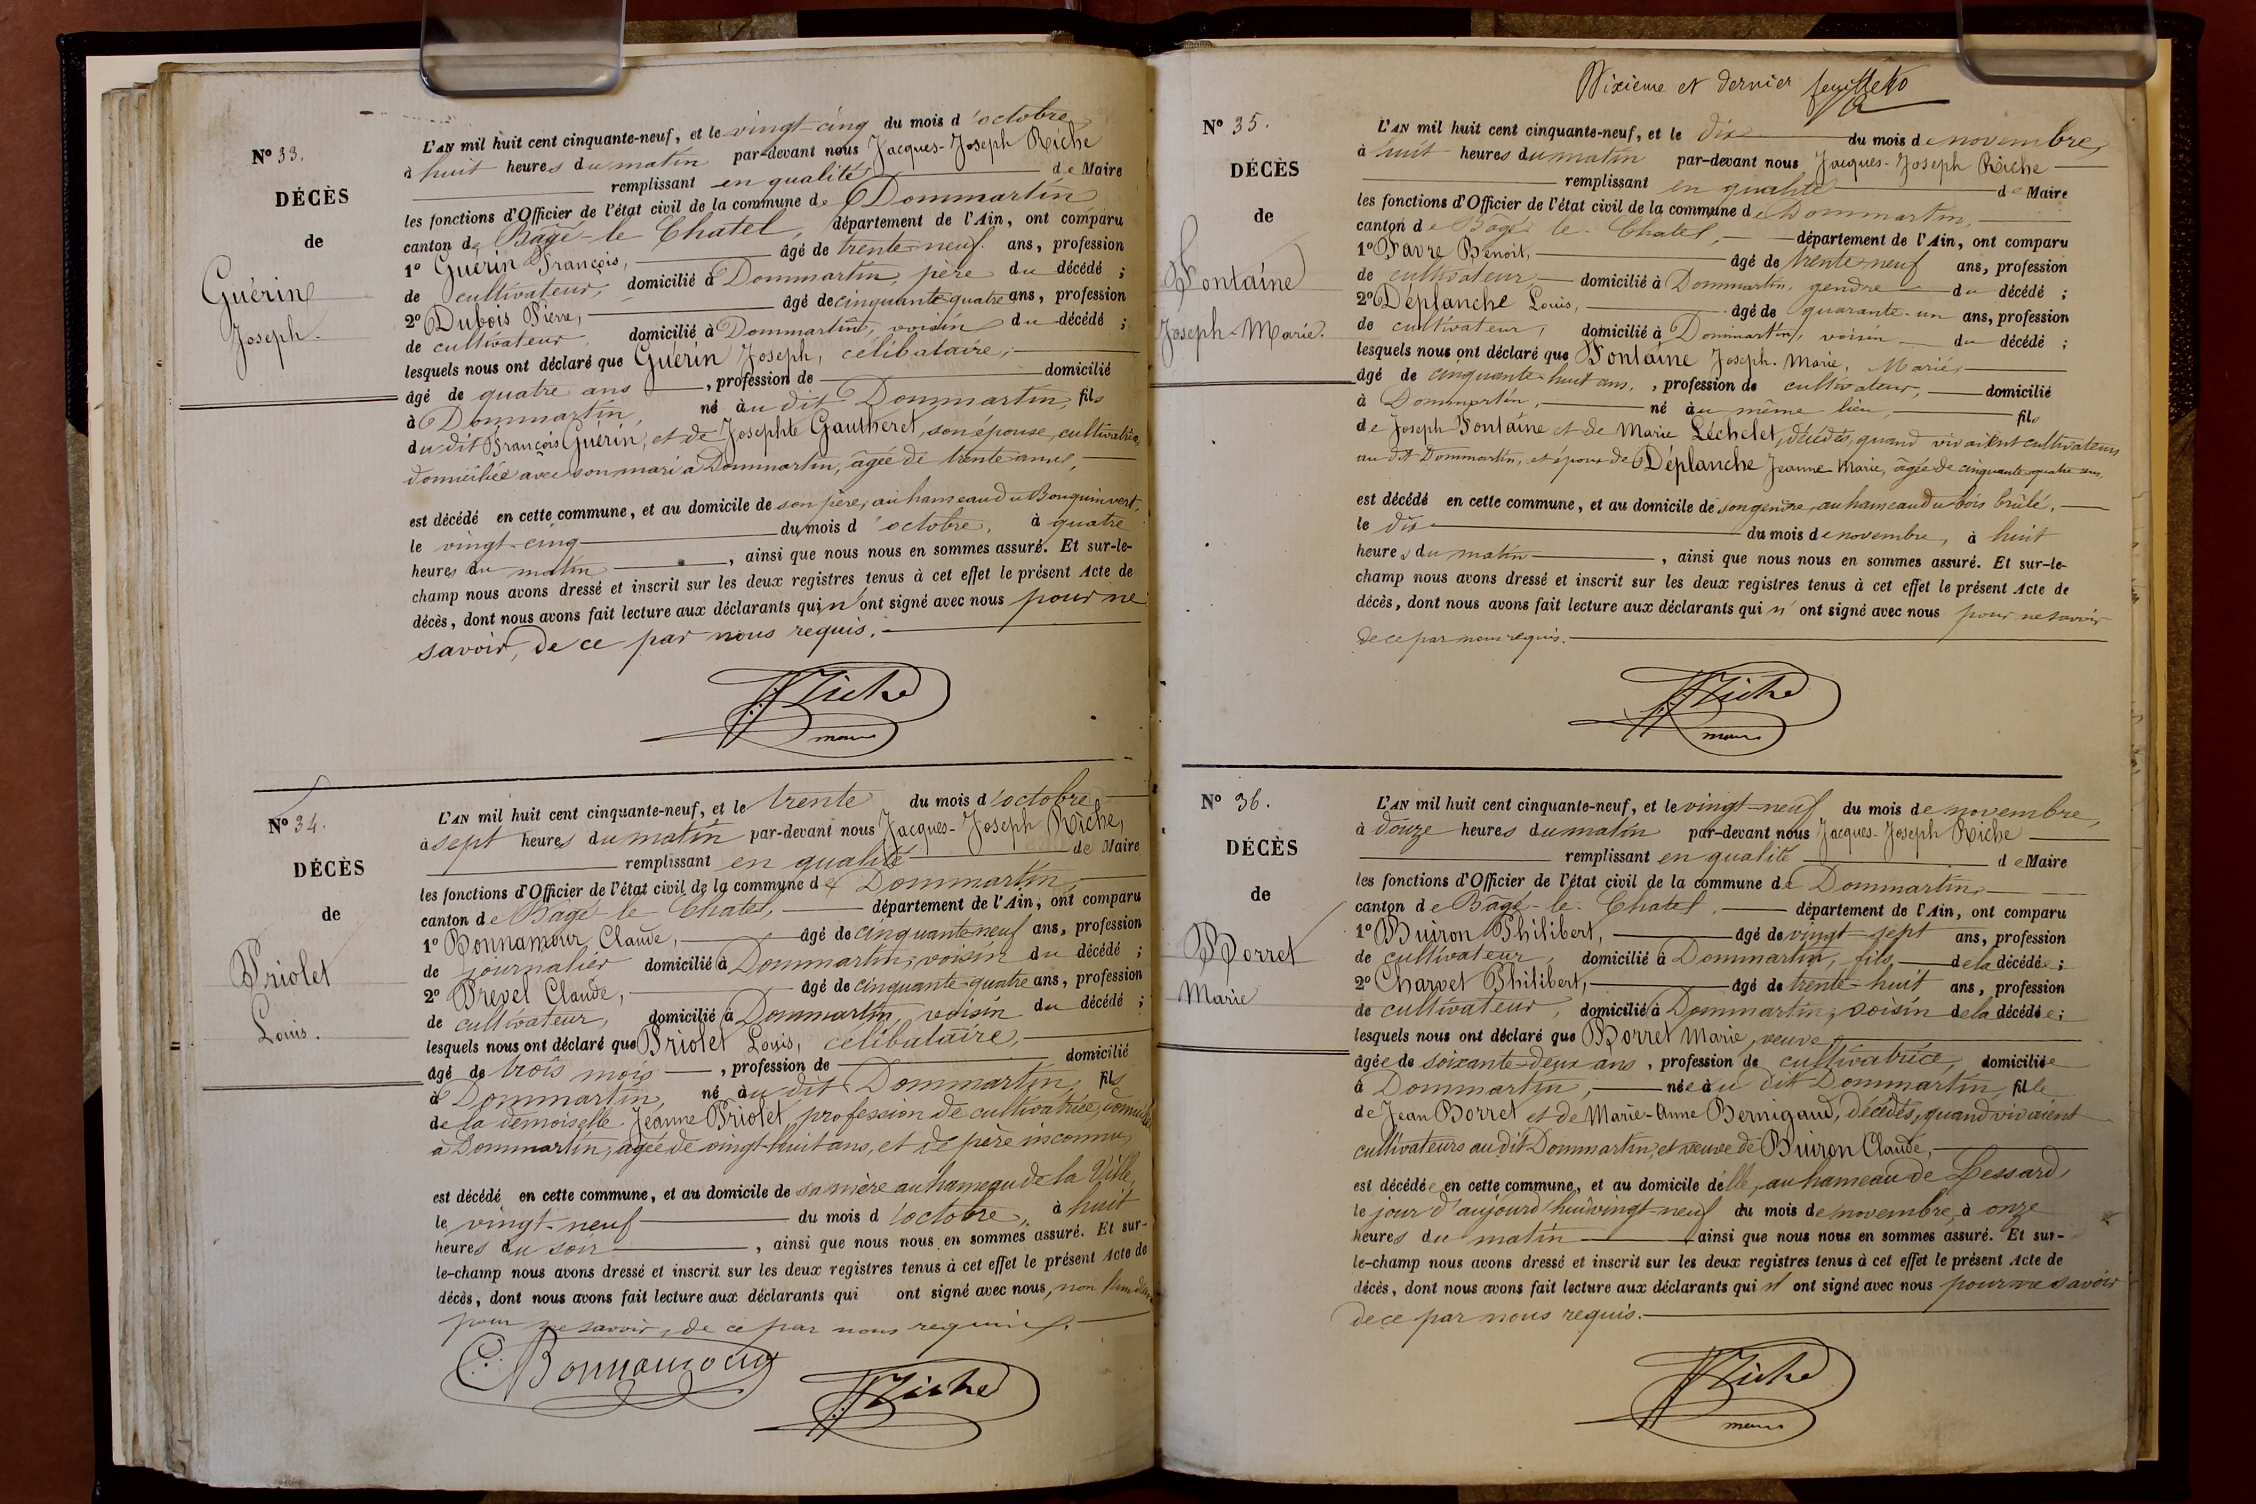 N° 33.
DÉCÈS
de
Guérin
Joseph.
L'AN mil huit cent cinquante-neuf, et le vingt-cinq du mois d'octobre,
à huit heures du matin par-devant nous Jacques-Joseph Riche
remplissant en qualité de Maire
les fonctions d'Officier de l'état civil de la commune de Dommartin
canton de Bâgé-le-Chatel, département de l'Ain, ont comparu
1° Guérin François, âgé de trente-neuf ans, profession
de cultivateur, domicilié à Dommartin, père du décédé ;
2° Dubois Pierre, âgé de cinquante-quatre ans, profession
de cultivateur, domicilié à Dommartin, voisin du décédé ;
lesquels nous ont déclaré que Guérin Joseph, célibataire,
âgé de quatre ans, profession de domicilié
à Dommartin, né au dit Dommartin, fils
du dit François Guérin, et de Josephte Gautheret, son épouse, cultivatrice,
domiciliée avec son mari à Dommartin, âgée de trente ans,
est décédé en cette commune, et au domicile de son père, au hameau du Bouquinvert,
le vingt-cinq du mois d'octobre, à quatre
heures du matin, ainsi que nous nous en sommes assuré. Et sur-le-
champ nous avons dressé et inscrit sur les deux registres tenus à cet effet le présent Acte de
décès, dont nous avons fait lecture aux déclarants qui n'ont signé avec nous pour ne
savoir, de ce par nous requis.
Riche
maire
N° 34.
DÉCÈS
de
Priolet
Louis.
L'AN mil huit cent cinquante-neuf, et le trente du mois d'octobre
à sept heures du matin par-devant nous Jacques-Joseph Riche,
remplissant en qualité de Maire
les fonctions d'Officier de l'état civil de la commune de Dommartin,
canton de Bâgé-le-Chatel, département de l'Ain, ont comparu
1° Bonnamour Claude, âgé de cinquante-neuf ans, profession
de journalier domicilié à Dommartin, voisin du décédé ;
2° Prevel Claude, âgé de cinquante-quatre ans, profession
de cultivateur, domicilié à Dommartin, voisin du décédé ;
lesquels nous ont déclaré que Priolet Louis, célibataire,
âgé de trois mois, profession de domicilié
à Dommartin, né au dit Dommartin, fils
de la demoiselle Jeanne Priolet, profession de cultivatrice,
à Dommartin, âgée de vingt-huit ans, et de père inconnu,
est décédé en cette commune, et au domicile de sa mère au hameau de la Ville,
le vingt-neuf du mois d'octobre, à huit
heures du soir, ainsi que nous nous en sommes assuré. Et sur-
le-champ nous avons dressé et inscrit sur les deux registres tenus à cet effet le présent Acte de
décès, dont nous avons fait lecture aux déclarants qui ont signé avec nous, non
pour ne savoir, de ce par nous requis.
C. Bonnamour
Riche
Dixieme et dernier feuilleto
N° 35.
DÉCÈS
de
Fontaine
Joseph-Marie.
L'AN mil huit cent cinquante-neuf, et le dix du mois de novembre,
à huit heures du matin par-devant nous Jacques-Joseph Riche
remplissant en qualité de Maire
les fonctions d'Officier de l'état civil de la commune de Dommartin,
canton de Bâgé-le-Chatel, département de l'Ain, ont comparu
1° Favre Benoit, âgé de trente-neuf ans, profession
de cultivateur, domicilié à Dommartin, gendre du décédé ;
2° Déplanche Louis, âgé de quarante-un ans, profession
de cultivateur, domicilié à Dommartin, voisin du décédé ;
lesquels nous ont déclaré que Fontaine Joseph-Marie, Marié,
âgé de cinquante-huit ans, profession de cultivateur, domicilié
à Dommartin, né au même lieu, fils
de Joseph Fontaine et de Marie Léchelet, décédés, quand vivaient cultivateurs
au dit Dommartin, et époux de Déplanche Jeanne Marie, âgée de cinquante-quatre ans,
est décédé en cette commune, et au domicile de son gendre, au hameau du bois brûlé,
le dix du mois de novembre, à huit
heures du matin, ainsi que nous nous en sommes assuré. Et sur-le-
champ nous avons dressé et inscrit sur les deux registres tenus à cet effet le présent Acte de
décès, dont nous avons fait lecture aux déclarants qui n'ont signé avec nous pour ne savoir
de ce par nous requis.
Riche
maire
N° 36.
DÉCÈS
de
Borret
Marie
L'AN mil huit cent cinquante-neuf, et le vingt-neuf du mois de novembre,
à douze heures du matin par-devant nous Jacques-Joseph Riche
remplissant en qualité de Maire
les fonctions d'Officier de l'état civil de la commune de Dommartin
canton de Bâgé-le-Chatel, département de l'Ain, ont comparu
1° Buiron Philibert, âgé de vingt-sept ans, profession
de cultivateur, domicilié à Dommartin, fils de la décédée ;
2° Charvet Philibert, âgé de trente-huit ans, profession
de cultivateur, domicilié à Dommartin, voisin de la décédée ;
lesquels nous ont déclaré que Borret Marie, veuve
âgée de soixante-deux ans, profession de cultivatrice, domiciliée
à Dommartin, née au dit Dommartin, fille
de Jean Borret et de Marie-Anne Bernigaud, décédés, quand vivaient
cultivateurs au dit Dommartin, et veuve de Buiron Claude,
est décédée en cette commune, et au domicile d'elle, au hameau de Lessard,
le jour d'aujourd'hui vingt-neuf du mois de novembre, à onze
heures du matin ainsi que nous nous en sommes assuré. Et sur-
le-champ nous avons dressé et inscrit sur les deux registres tenus à cet effet le présent Acte de
décès, dont nous avons fait lecture aux déclarants qui n'ont signé avec nous pour ne savoir
de ce par nous requis.
Riche
maire